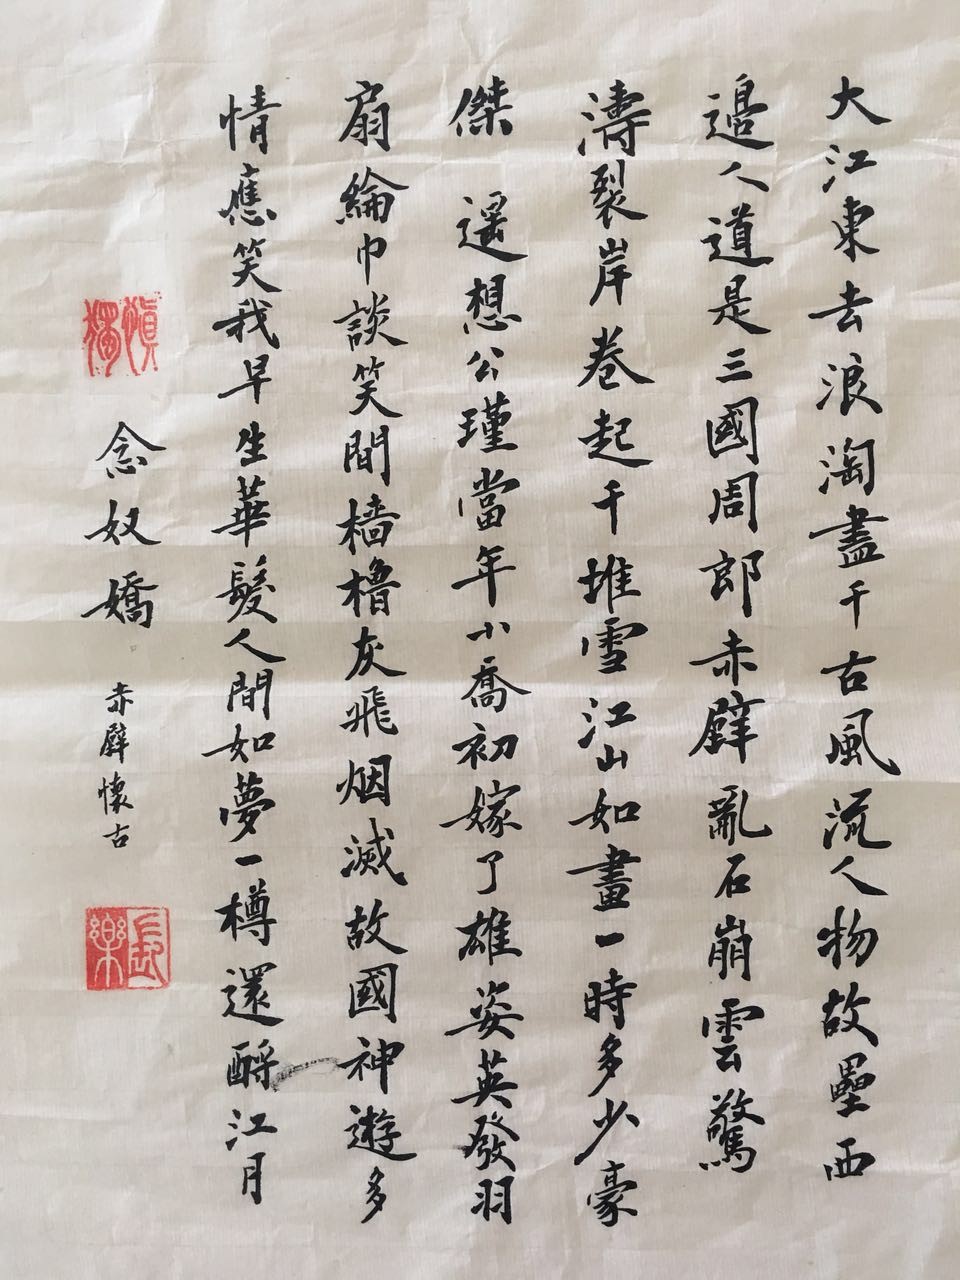 大江東去浪淘盡千古風流人物故壘西
邊人道是三國周郎赤壁亂石崩雲驚
濤裂岸卷起千堆雪江山如畫一時多少豪
傑 遥想公瑾當年小喬初嫁了雄姿英發羽
扇綸巾談笑間檣櫓灰飛烟滅故國神遊多
情應笑我早生華髮人間如夢一樽還酹江月
慎獨
念奴嬌 赤壁懷古
長樂